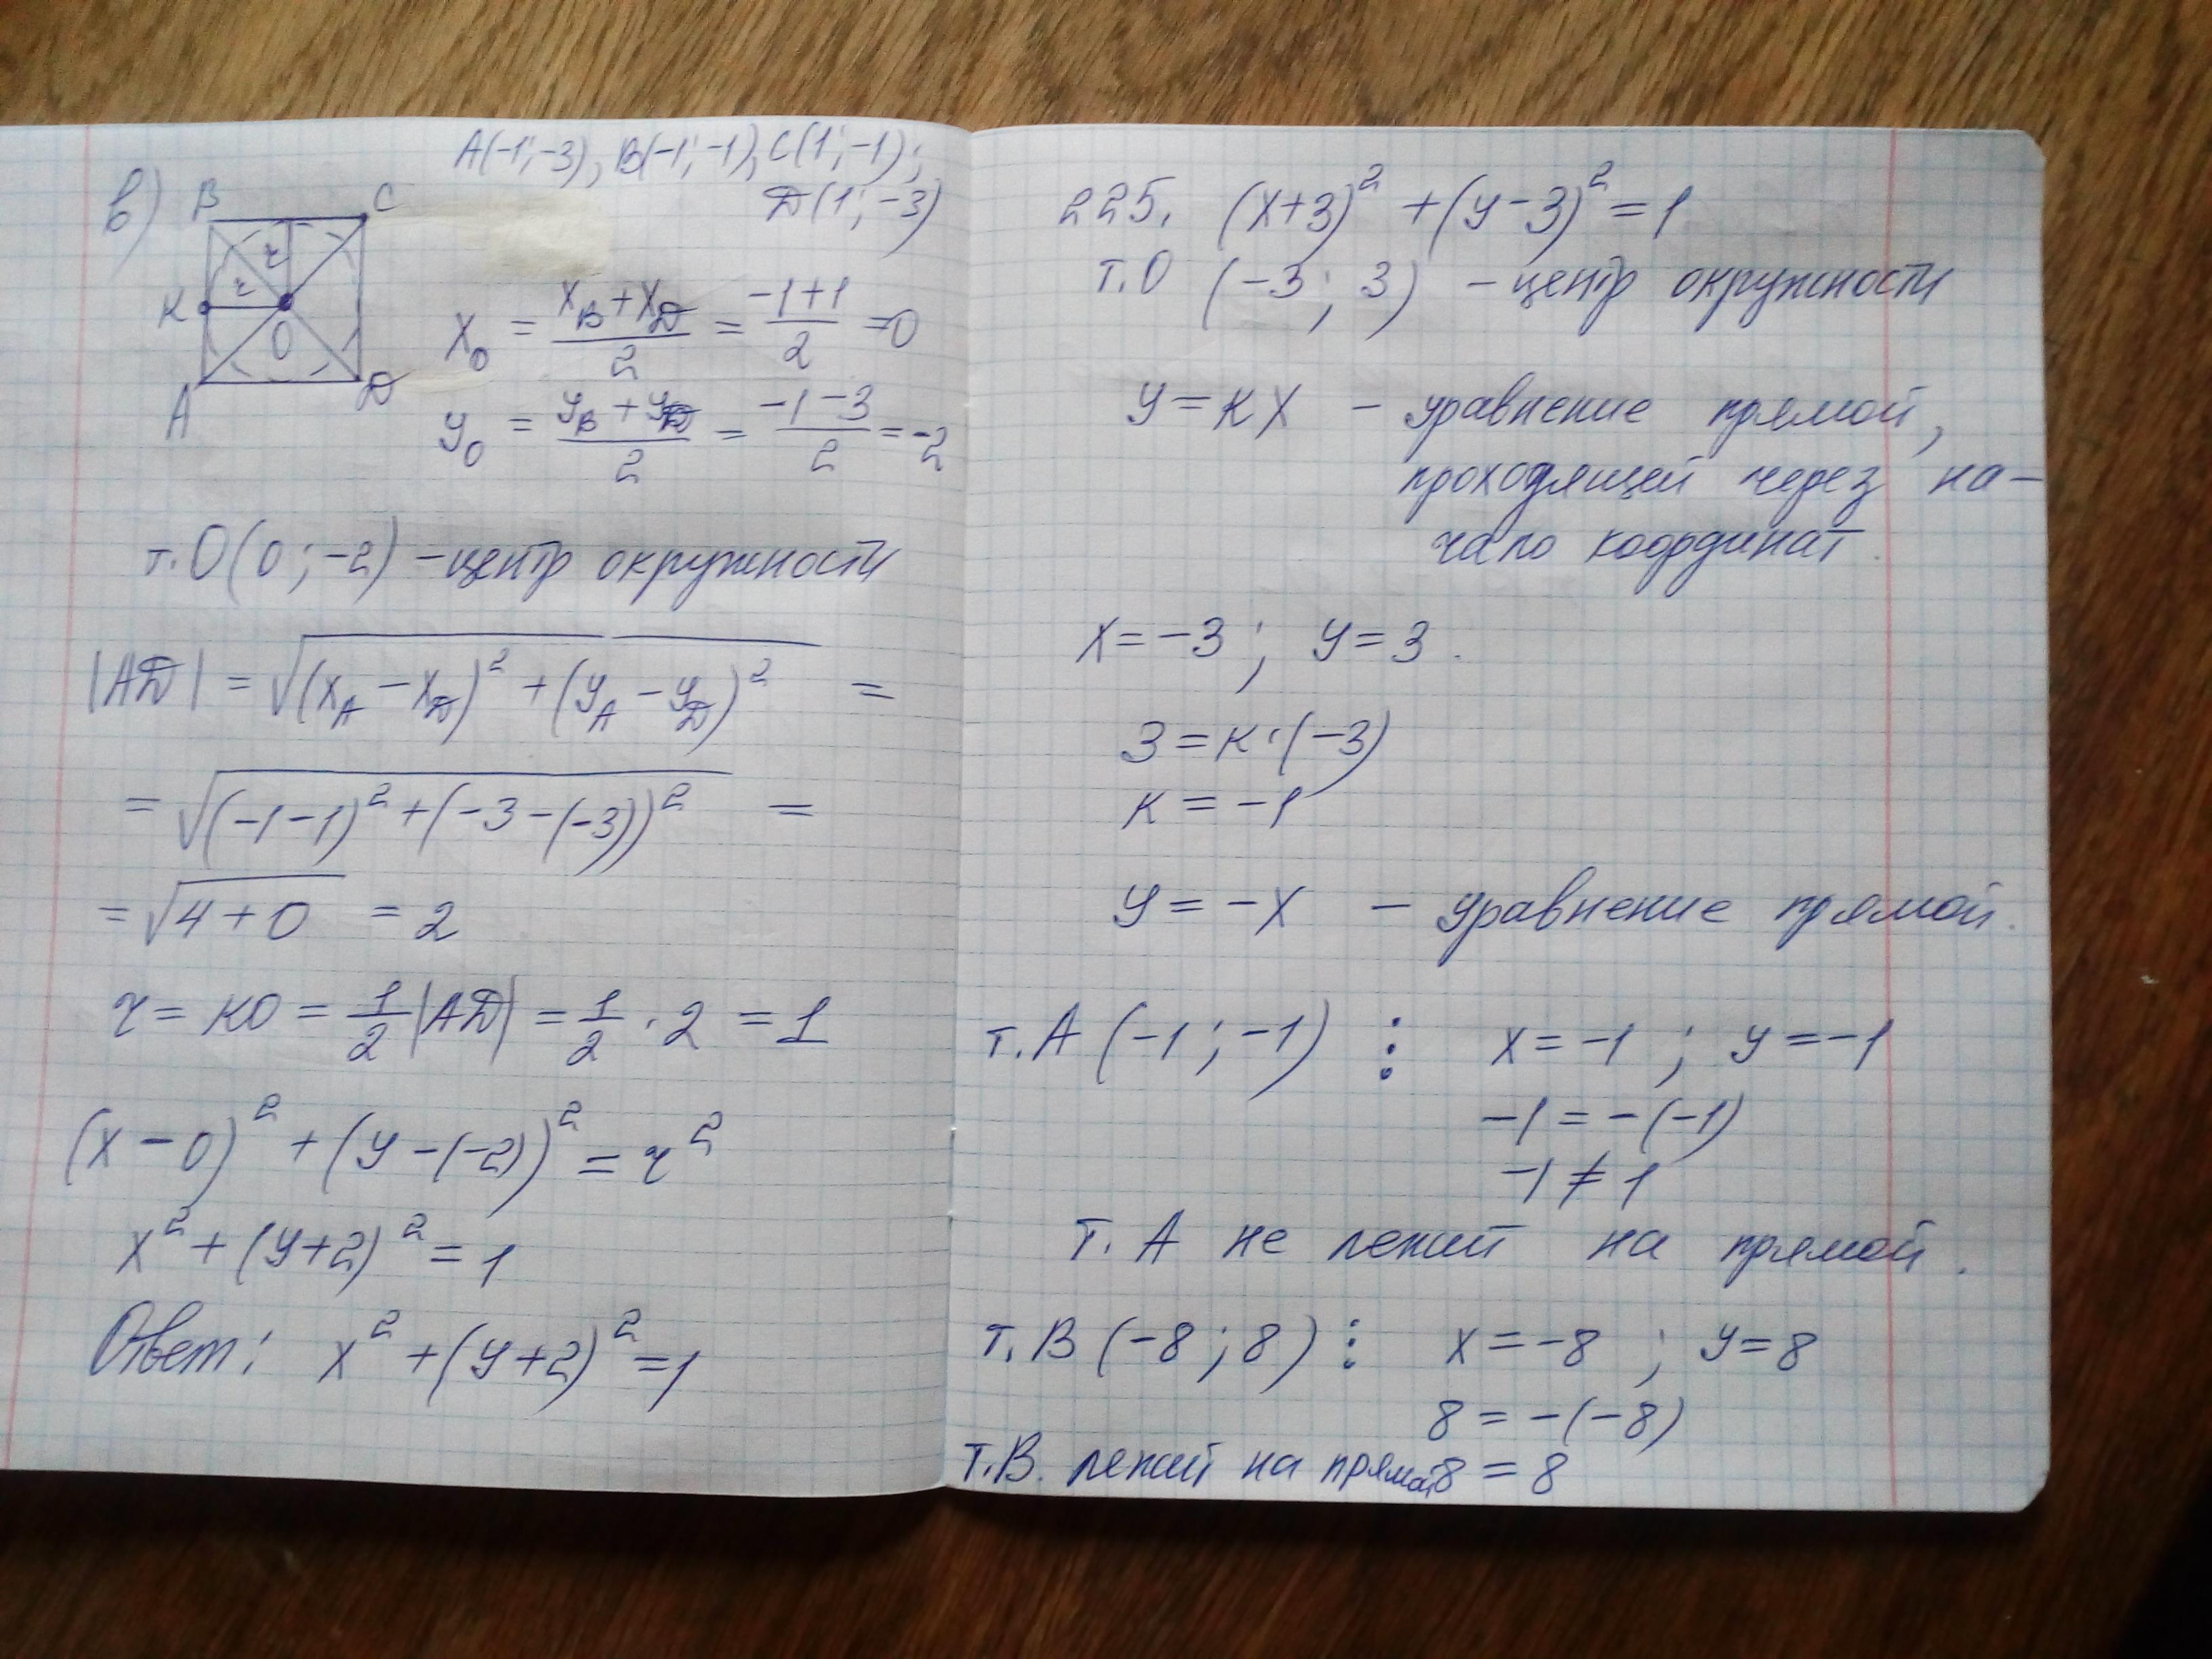 A(-1;-3), B(-1;-1), C(1;-1);
Д(1;-3)
в)
B C
r
r
K
O
A Д
x₀ = (x_B + x_Д)/2 = (-1+1)/2 = 0
y₀ = (y_B + y_Д)/2 = (-1-3)/2 = -2
т. O(0;-2) - центр окружности
|AД| = √((x_A - x_Д)² + (y_A - y_Д)²) =
= √((-1-1)² + (-3-(-3))²) =
= √(4+0) = 2
r = KO = 1/2 |AД| = 1/2 · 2 = 1
(x-0)² + (y-(-2))² = r²
x² + (y+2)² = 1
Ответ: x² + (y+2)² = 1
225. (x+3)² + (y-3)² = 1
т. O (-3; 3) - центр окружности
y = кx - уравнение прямой,
проходящей через на-
чало координат.
x = -3; y = 3.
3 = к·(-3)
к = -1
y = -x - уравнение прямой.
т. A (-1; -1) : x = -1; y = -1
-1 = -(-1)
-1 ≠ 1
т. A не лежит на прямой.
т. B (-8; 8) : x = -8; y = 8
8 = -(-8)
т. B. лежит на прямой 8 = 8